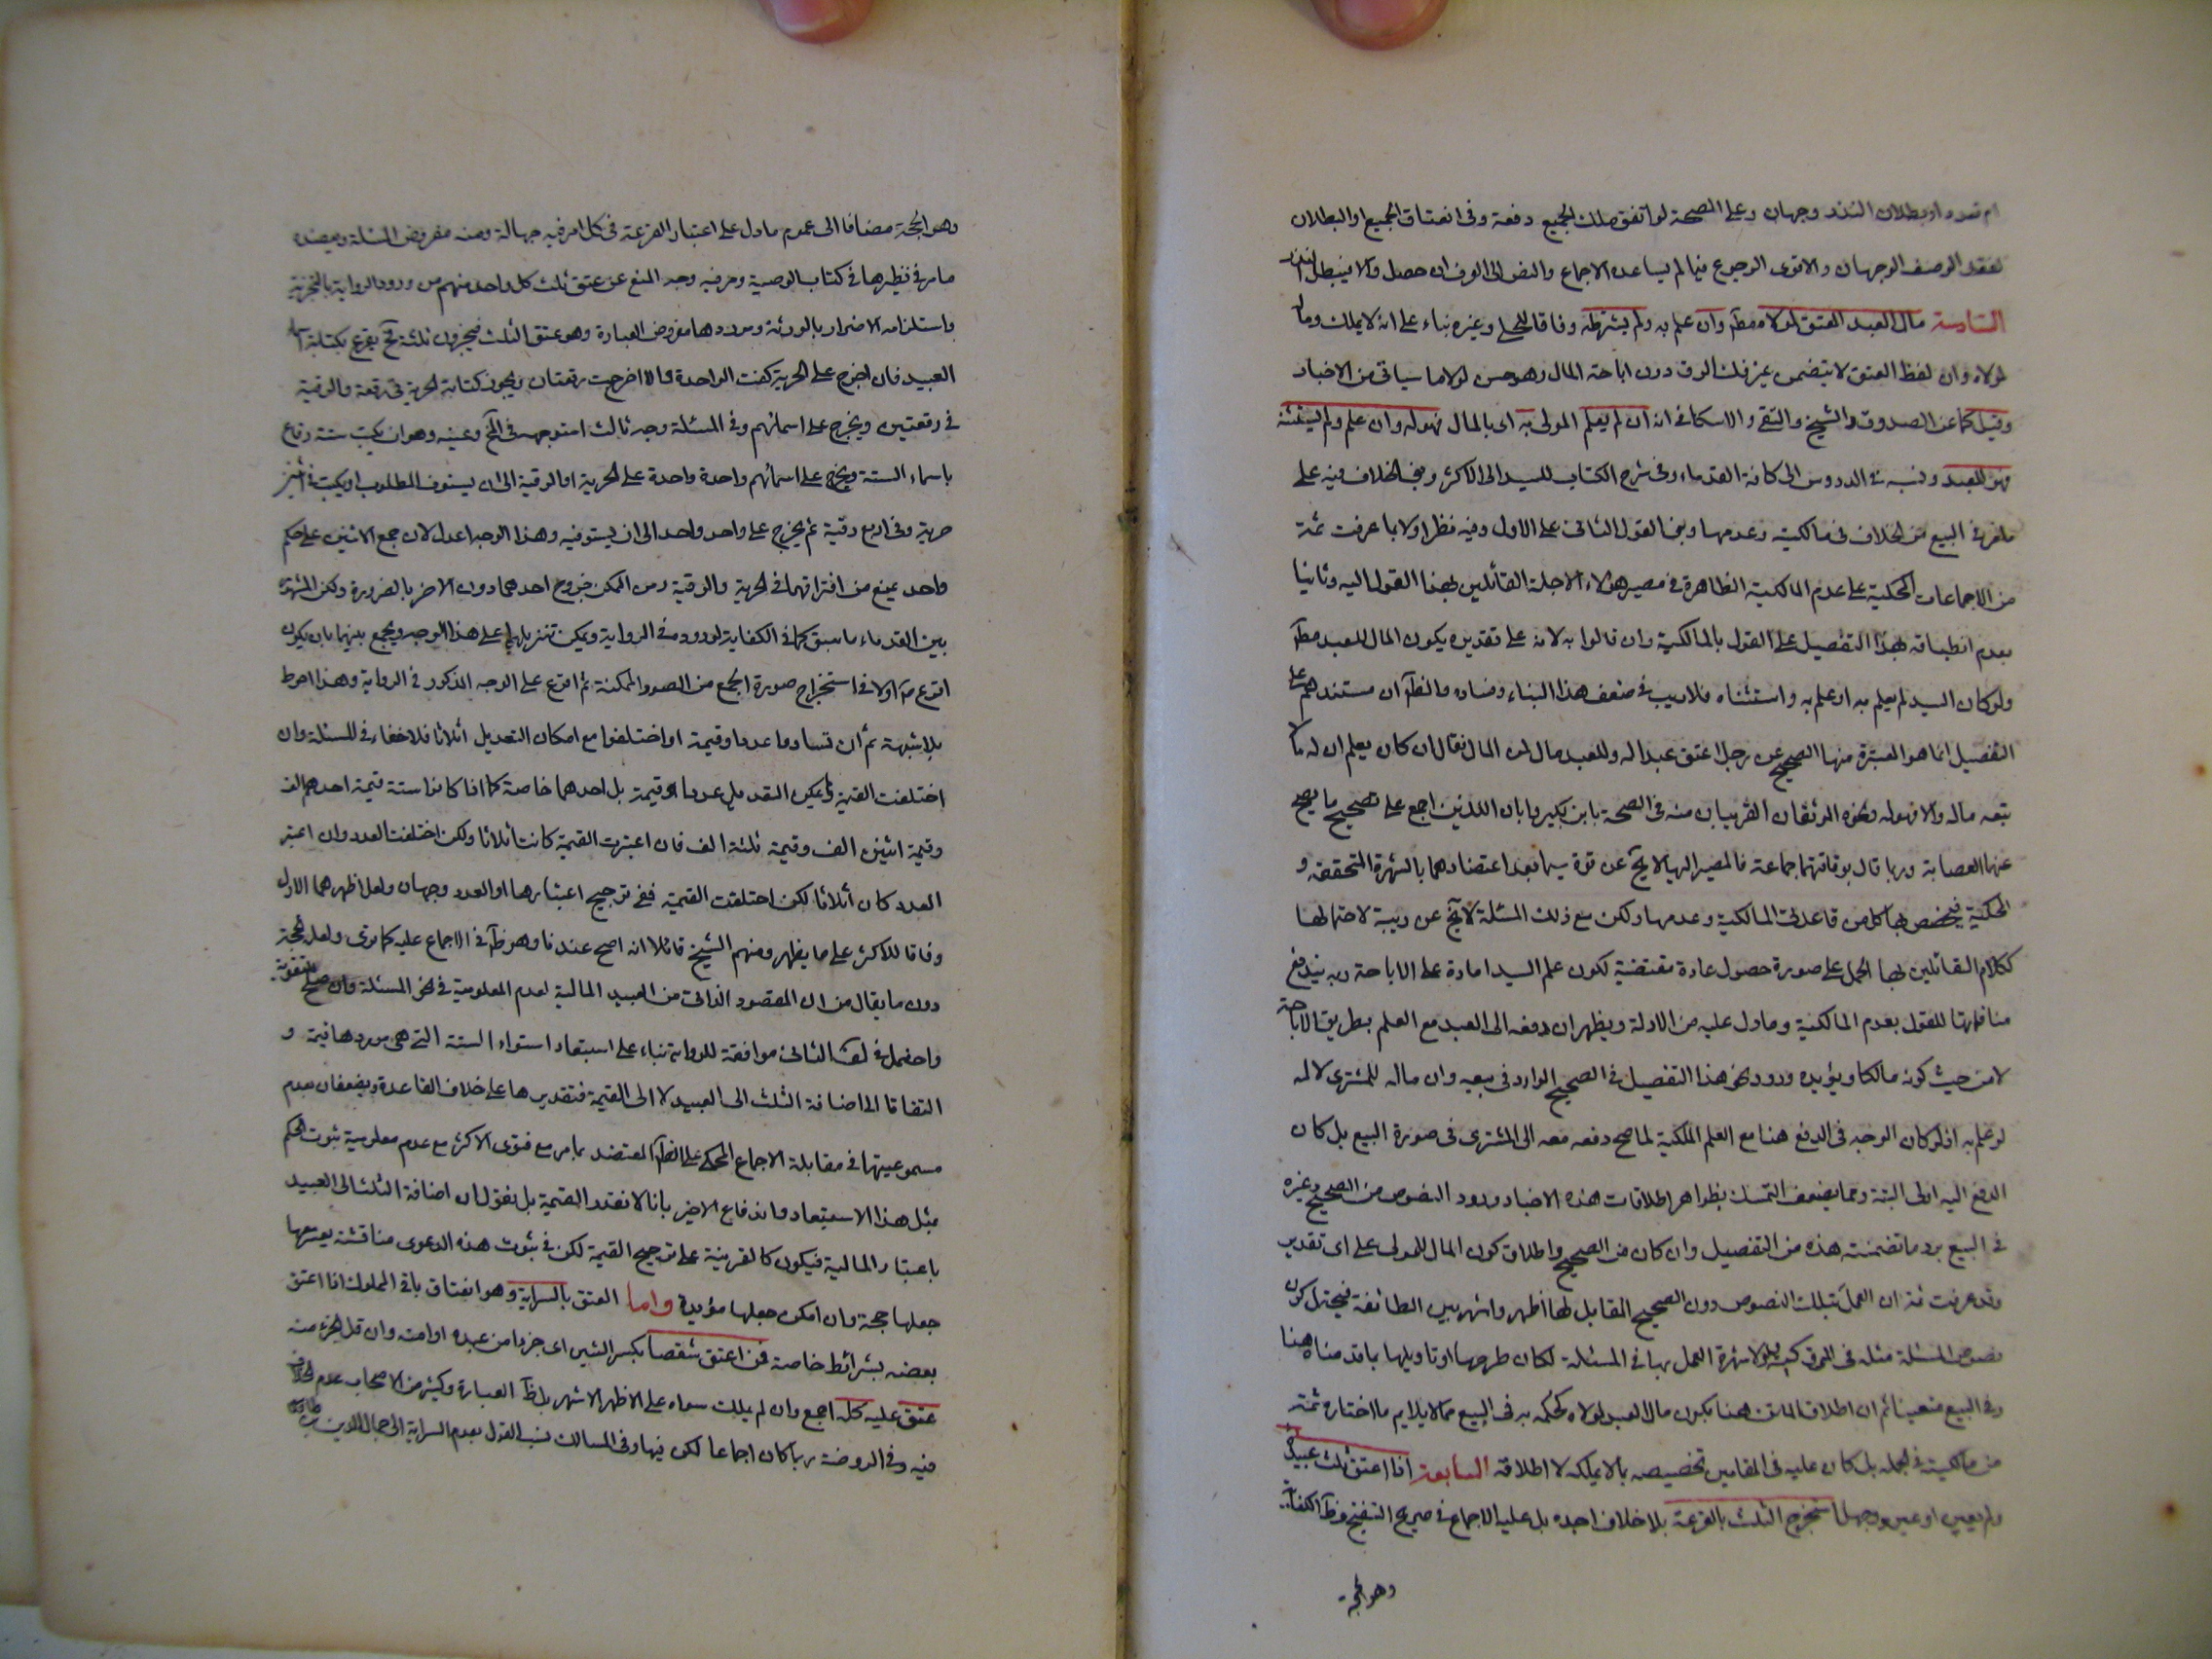 ام تعدد او بطلان النذر وجهان وعلى الصحة لو اتفق ملك الجميع دفعة وفى انعتاق الجميع او البطلان
لفقد الوصف الوجهان والاقوى الرجوع فيما لم يساعده الاجماع والنص الى العرف ان حصل والا فيبطل النذر
السادسة مال العبد المعتق لمولاه مطآ وان علم به ولم يشترطه وفاقا للحلى وغيره بناء على انه لا يملك وماله
لمولاه وان لفظ العتق لا يتضمن غير فك الرق دون اباحة المال وهو حسن لولا ما سياتى من الاخبار
وقيل كما عن الصدوق والشيخ والتقى والاسكافى انه ان لم يعلم المولى به اى بالمال فهو له وان علم ولم يستثنه
فهو للعبد ونسبه فى الدروس الى كافة القدماء وفى شرح الكتاب للسيد الى الاكثر وبنى الخلاف فيه على
ما مر فى البيع من الخلاف فى مالكيته وعدمها وبنى القول الثانى على الاول وفيه نظر اولا بما عرفت ثمة
من الاجماعات المحكية على عدم المالكية الظاهرة فى مصير هؤلاء الاجلة القائلين بهذا القول اليه وثانيا
بعدم انطباقه بهذا التفصيل على القول بالمالكية وان قالوا به لانه على تقديره يكون المال للعبد مطآ
ولو كان السيد لم يعلم به او علم به واستثناه فلا ريب فى ضعف هذا البناء وفساده والظآ ان مستندهم على
التفصيل انما هو المعتبرة منها الصحيح عن رجل اعتق عبدا له وللعبد مال لمن المال فقال ان كان يعلم ان له مالا
تبعه ماله والا فهو له ونحوه الموثقان القريبان منه فى الصحة بابن بكير وابان اللذين اجمع على تصحيح ما يصح
عنهما العصابة وربما قال بوثاقتهما جماعة فالمصير اليها لا يخ عن قوة سيما بعد اعتضادهما بالشهرة المتحققة و
المحكية فيخصص بها كل من قاعدتى المالكية وعدمها ولكن مع ذلك المسئلة لا تخ عن ريبة لاحتمالها
ككلام القائلين بها الحمل على صورة حصول عادة مقتضية لكون علم السيد امارة على الاباحة وبه يندفع
منافاتها للقول بعدم المالكية وما دل عليه من الادلة ويظهر ان دفعه الى العبد مع العلم بطريق الاباحة
لا من حيث كونه مالكا ويؤيده ورود نحو هذا التفصيل فى الصحيح الوارد فى بيعه وان ماله للمشترى لا له
لو علم به اذ لو كان الوجه فى الدفع هنا مع العلم الملكية لما صح دفعه معه الى المشترى فى صورة البيع بل كان
الدفع اليه اولى البتة ومما يضعف التمسك بظواهر اطلاقات هذه الاخبار ورود النصوص من الصحيح وغيره
فى البيع برد ما تضمنته هذه من التفصيل وان كان من الصحيح واطلاق كون المال للمولى على اى تقدير
وقد عرفت ثمة ان العمل بتلك النصوص دون الصحيح المقابل لها اظهر واشهر بين الطائفة فيحتمل كون
نصوص المسئلة مثله فى المرجوحية ولولا شهرة العمل بها فى المسئلة لكان طرحها او تاويلها بما قدمناه هنا
وفى البيع متعينا ثم ان اطلاق الماتن هنا بكون مال العبد لمولاه كحكمه به فى البيع مما لا يلايم ما اختاره ثمة
من مالكيته فى الجملة بل كان عليه فى المقامين تخصيصه بما لا يملكه لا اطلاقه السابعة اذا اعتق ثلث عبيده
ولم يعين او عين وجهل استخرج الثلث بالقرعة بلا خلاف اجده بل عليه الاجماع فى صريح التنقيح وظآ الكفاية
وهو الحجة
وهو الحجة مضافا الى عموم ما دل على اعتبار القرعة فى كل امر فيه جهالة ومنه مفروض المسئلة ويعضده
ما مر فى نظيرها فى كتاب الوصية ومر فيه وجه المنع عن عتق ثلث كل واحد منهم من ورود الرواية بالتجزية
واستلزامه الاضرار بالورثة وموردها مفروض العبارة وهو عتق الثلث فيجزؤن ثلثة ثم يقرع بكتابة اسماء
العبيد فان اخرج على الحرية كفت الواحدة والا اخرجت رقعتان ويجوز كتابة الحرية فى رقعة والرقية
فى رقعتين ويخرج على اسمائهم وفى المسئلة وجه ثالث استوجهه فى لك وغيره وهو ان يكتب ستة رقاع
باسماء الستة ويخرج على اسمائهم واحدة واحدة على الحرية او الرقية الى ان يستوفى المطلوب او يكتب فى اثنين
حرية وفى اربع رقية ثم يخرج على واحد واحد الى ان يستوفيه وهذا الوجه اعدل لان جمع الاثنين على حكم
واحد يمنع من افتراقهما فى الحرية والرقية ومن الممكن خروج احدهما دون الاخر بالضرورة ولكن المشتهر
بين القدماء ما سبق كما فى الكفاية لوروده فى الرواية ويمكن تنزيلها على هذا الوجه ويجمع بينهما بان يكون
اقرع ص اولا فى استخراج صورة الجمع من الصور الممكنة ثم اقرع على الوجه المذكور فى الرواية وهذا احوط
بلا شبهة ثم ان تساووا عددا وقيمة او اختلفوا مع امكان التعديل اثلاثا فلا خفاء فى المسئلة وان
اختلفت القيمة ولم يمكن التعديل عددا وقيمة بل احدهما خاصة كما اذا كانوا ستة قيمة احدهم الف
وقيمة اثنين الف وقيمة ثلثة الف فان اعتبرت القيمة كانت اثلاثا ولكن اختلفت العدد وان اعتبر
العدد كان اثلاثا لكن اختلفت القيمة ففى ترجيح اعتبارها او العدد وجهان ولعل اظهرهما الاول
وفاقا للاكثر على ما يظهر ومنهم الشيخ قائلا انه اصح عندنا وهو ظآ فى الاجماع عليه كما ترى ولعله الحجة
دون ما يقال من ان المقصود الذاتى من العبيد المالية لعدم المعلومية فى نحو المسئلة وان صلح للتقوية
واحتمل فى لك الثانى موافقة للرواية بناء على استبعاد استواء الستة التى هى موردها قيمة و
التفاتا الى اضافة الثلث الى العبيد لا الى القيمة فتقديرها على خلاف القاعدة ويضعفان بعدم
مسموعيتها فى مقابلة الاجماع المحكى على الظآ المعتضد بما مر مع فتوى الاكثر مع عدم معلومية ثبوت الحكم
بمثل هذا الاستبعاد واندفاع الاخير بانا لا نقدر القيمة بل نقول ان اضافة الثلث الى العبيد
باعتبار المالية فيكون كالقرينة على ترجيح القيمة لكن فى ثبوت هذه الدعوى مناقشة يعسر معها
جعلها حجة وان امكن جعلها مؤيدة واما العتق بالسراية وهو انعتاق باقى المملوك اذا اعتق
بعضه بشرائط خاصة فمن اعتق شقصا بكسر الشين اى جزءا من عبده او امته وان قل الجزء منه
عتق عليه كله اجمع وان لم يملك سواه على الاظهر الاشهر بل ظآ العبارة وكثير من الاصحاب عدم الخلاف
فيه وفى الروضة ربما كان اجماعا لكن فيها وفى المسالك نسب القول بعدم السراية الى جمال الدين بن طاوس